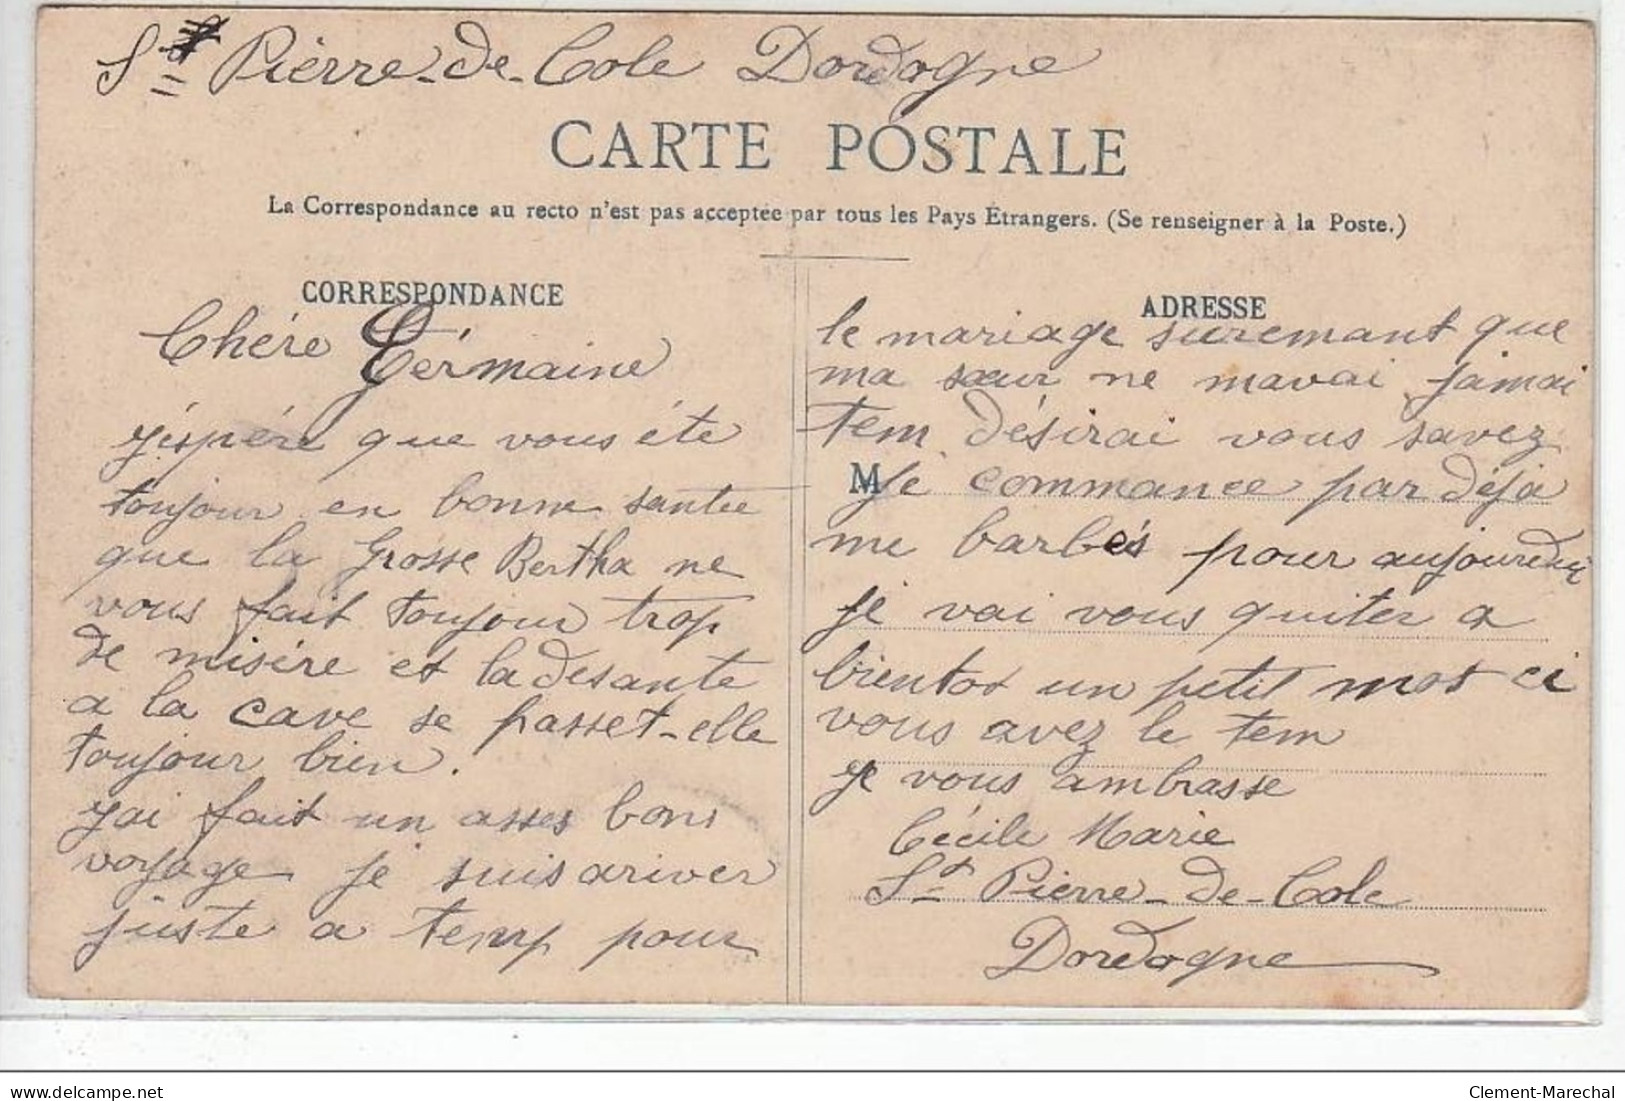 St Pierre-de-Cole Dordogne
CARTE POSTALE
La Correspondance au recto n'est pas acceptée par tous les Pays Étrangers. (Se renseigner à la Poste.)
CORRESPONDANCE
Chére Gérmaine
j'éspére que vous éte
toujour en bonne santée
que la Grosse Bertha ne
vous fait toujour trop
de misére et la desante
a la cave se passet-elle
toujour bien.
j'ai fait un asses bons
voyage je suis ariver
juste a temp pour
ADRESSE
le mariage suremant que
ma sœur ne mavai jamai
tem désirai vous savez
M
je commance par déja
me barbés pour aujourdui
je vai vous quiter a
bientot un petit mot ci
vous avez le tem
je vous ambrasse
Cécile Marie
St Pierre-de-Cole
Dordogne
www.delcampe.net
Clement-Marechal